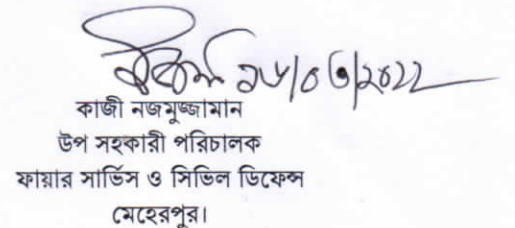 ১৬/০৩/২০২২
কাজী নজমুজ্জামান
উপ সহকারী পরিচালক
ফায়ার সার্ভিস ও সিভিল ডিফেন্স
মেহেরপুর।